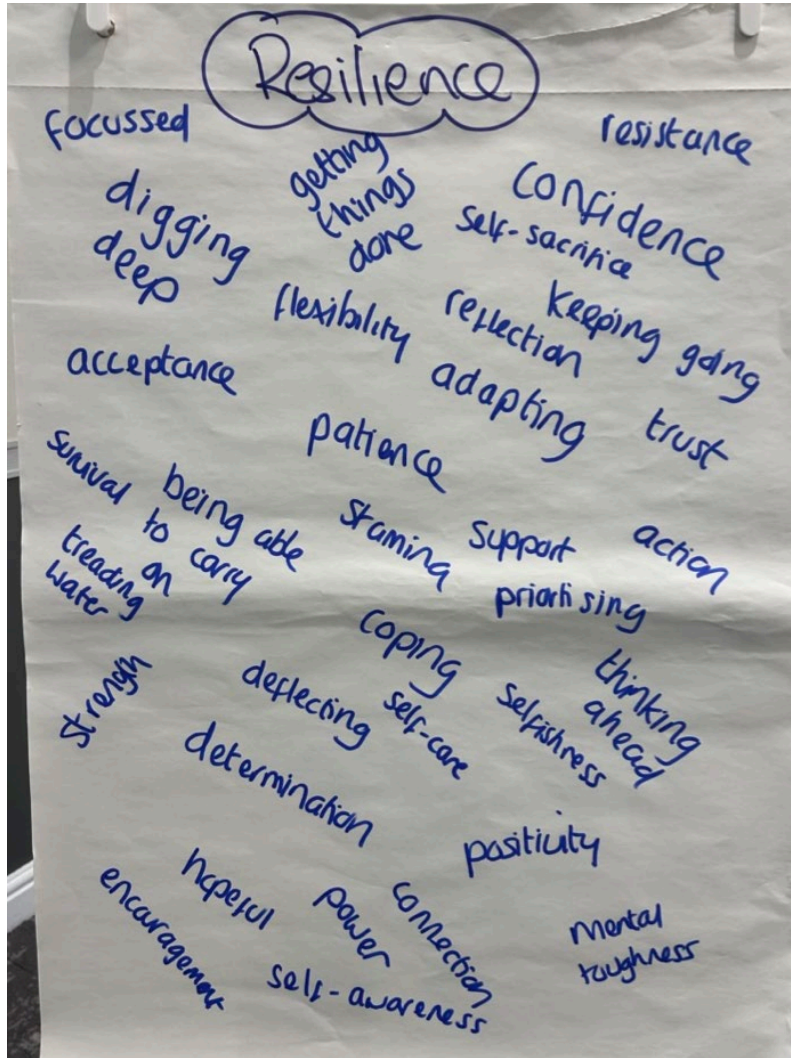 Resilience
focussed
resistance
getting
things
done
confidence
self-sacrifice
digging
deep
flexibility
reflection
keeping going
acceptance
adapting
trust
patience
survival
being able
to carry
on
stamina
support
action
treading
water
prioritising
coping
thinking
ahead
strength
deflecting
self-care
selfishness
determination
positivity
hopeful
power
connection
encouragement
mental
toughness
self-awareness